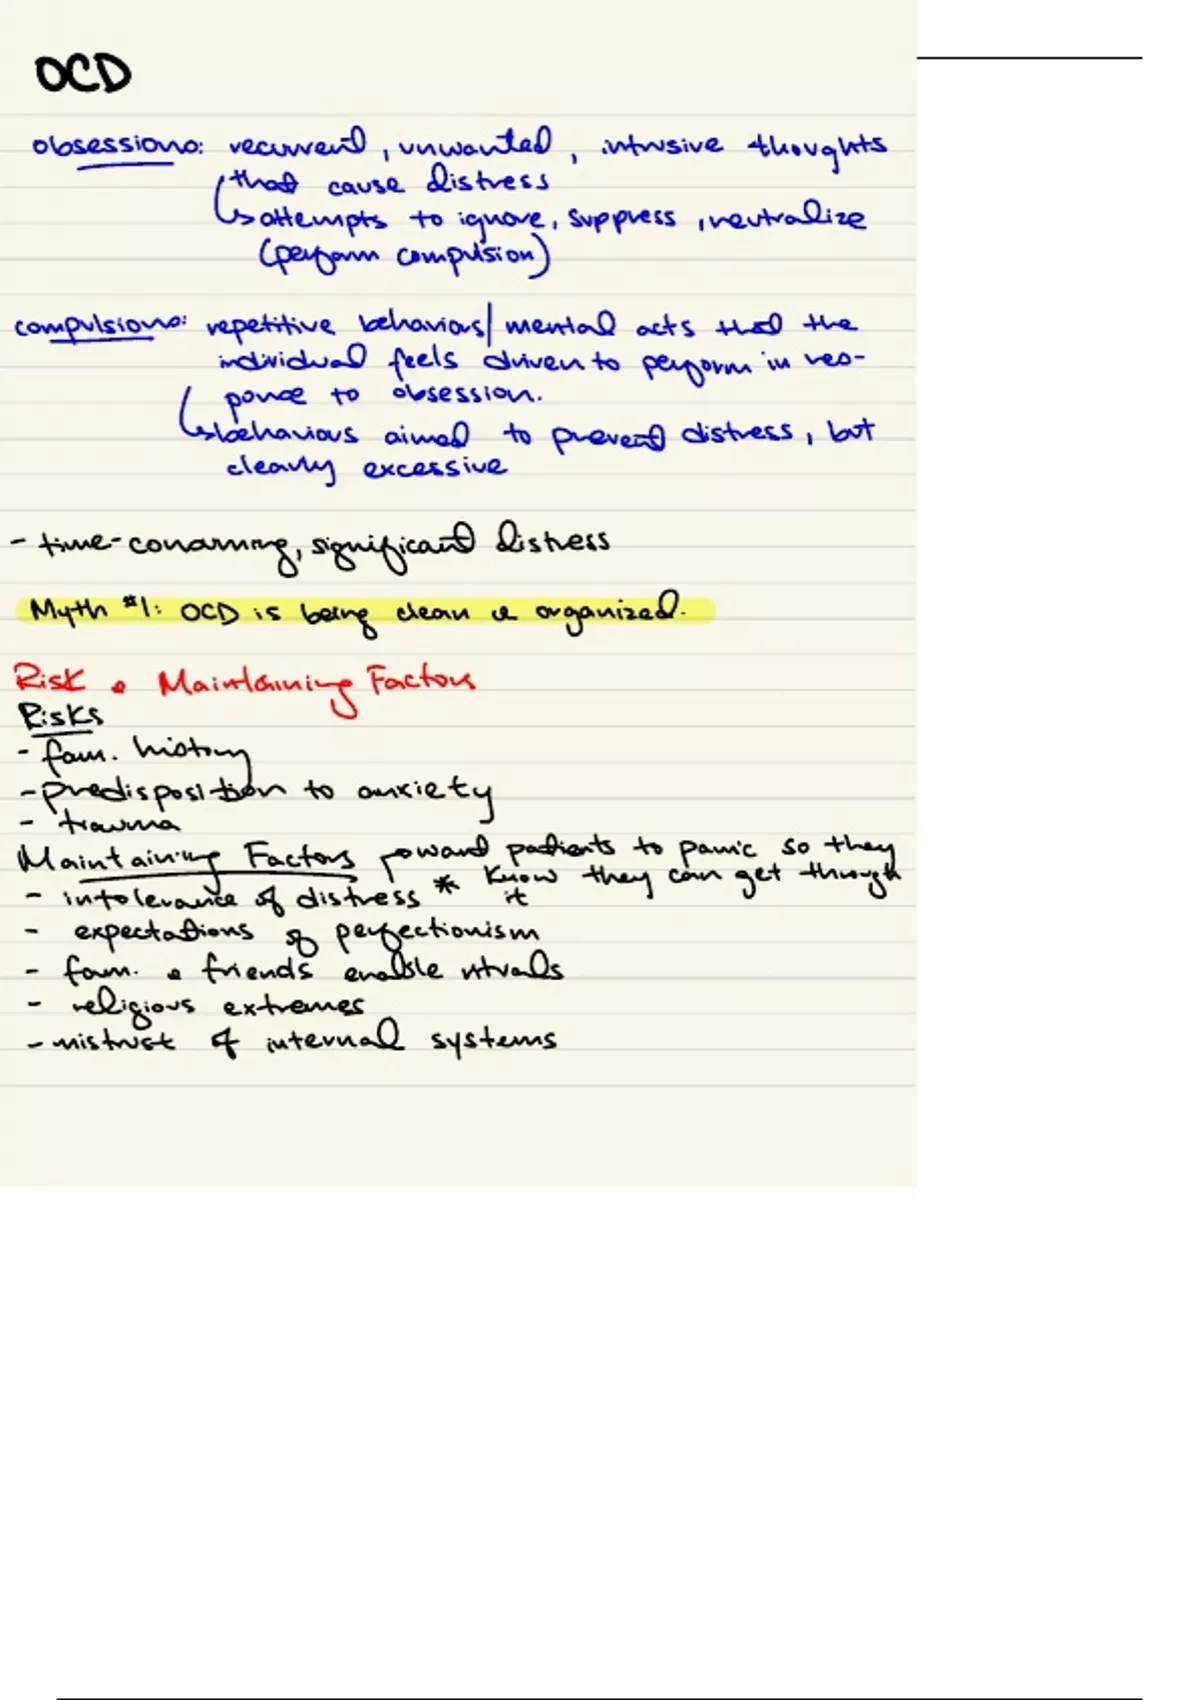 OCD
obsessions: recurrent, unwanted, intrusive thoughts
that cause distress
↳ attempts to ignore, suppress, neutralize
(perform compulsion)
compulsions: repetitive behaviors/mental acts that the
individual feels driven to perform in res-
ponse to obsession.
↳ behaviours aimed to prevent distress, but
clearly excessive
- time-consuming, significant distress
Myth #1: OCD is being clean & organized.
Risk & Maintaining Factors
Risks
- fam. history
- predisposition to anxiety
- trauma
Maintaining Factors patients to panic so they
- intolerance of distress * know they can get through
it
- expectations of perfectionism
- fam. & friends enable rituals
- religious extremes
- mistrust of internal systems